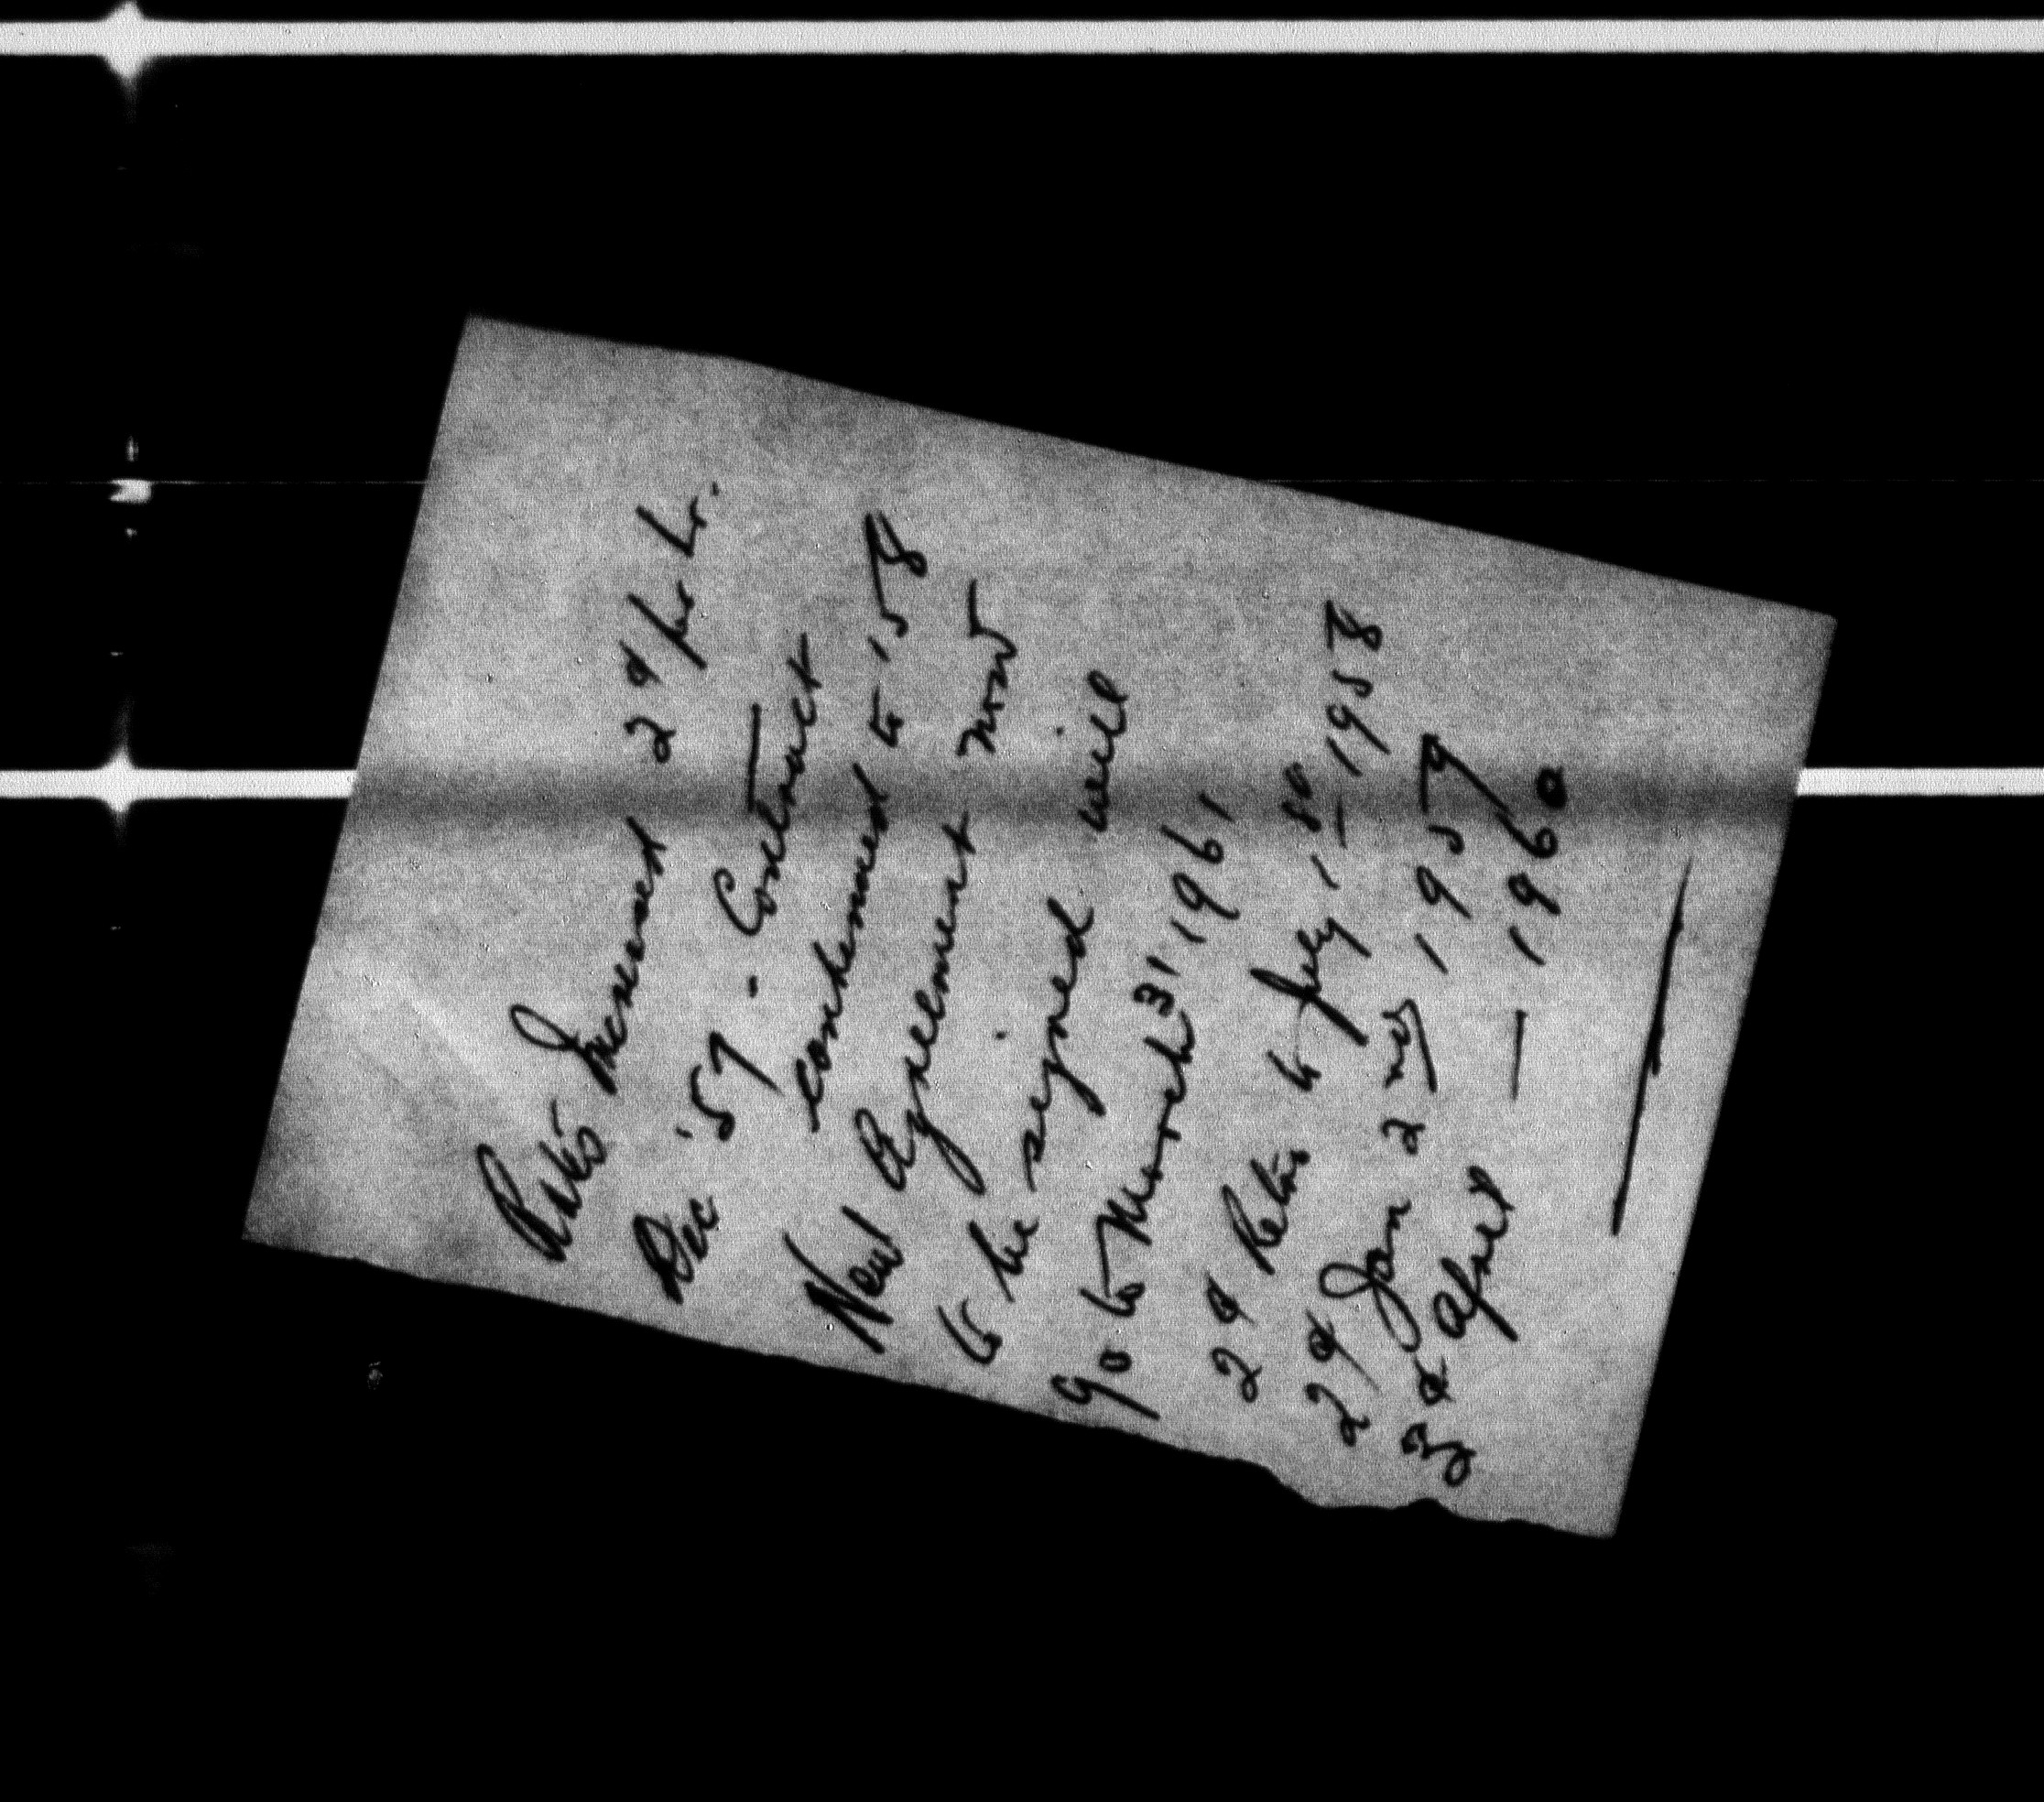 Rates Increased 2¢ per hr.
Dec '57 - Contract
continued to '58
New Agreement now
to be signed will
go to March 31 1961
2¢ Retro to July 1 - 1958
2¢ Jan 2 1959
3¢ April — 1960